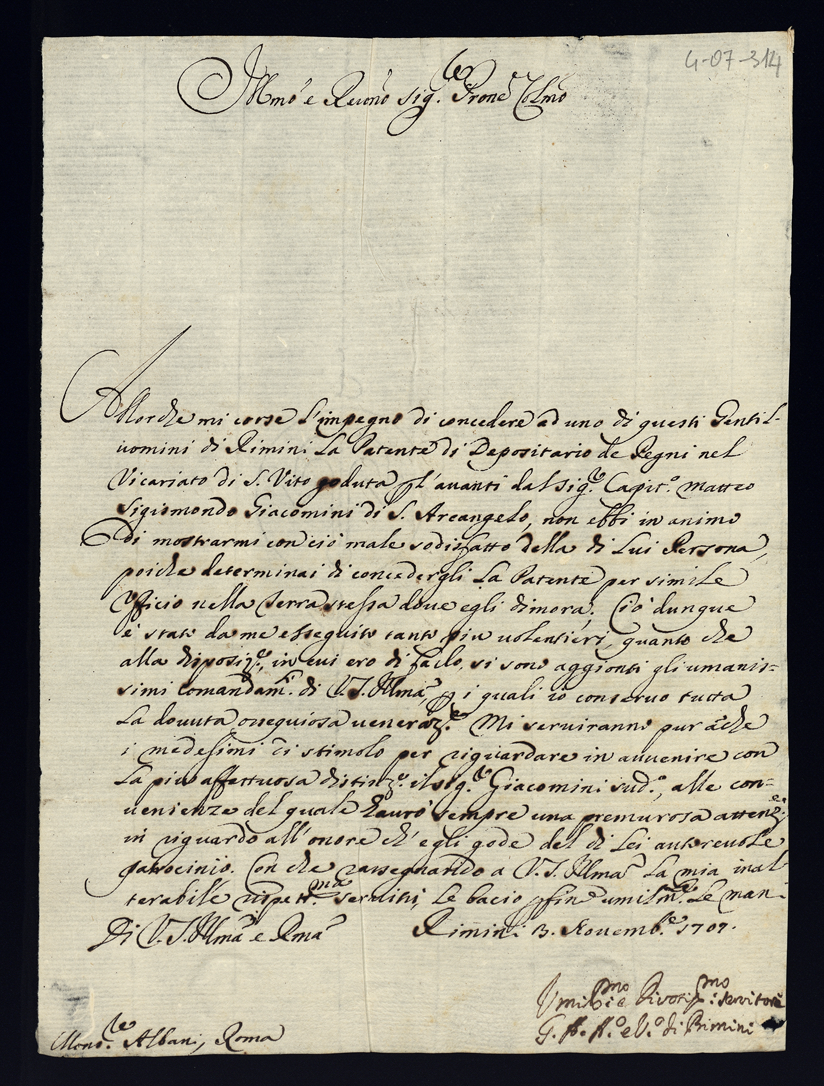 4-07-314
Illmo e Revmo Sig.re Prone Colmo
Allorche mi corse l'impegno di concedere ad uno di questi Gentil-
uomini di Rimini la Patente di Depositario de Pegni nel
Vicariato di S. Vito goduta p l'avanti dal Sig.re Capit.o Matteo
Sigismondo Giacomini di S. Arcangelo, non ebbi in animo
di mostrarmi con ciò male sodisfatto della di Lui Persona,
poiche determinai di concedergli la Patente per simile
Officio nella Terra stessa dove egli dimora. Ciò dunque
è stato da me esseguito tanto piu volentieri, quanto che
alla disposiz.e, in cui ero di farlo, si sono aggionti gli umanis-
simi comandam.ti di V.S. Illma, p i quali io conservo tutta
la dovuta ossequiosa veneraz.e Mi serviranno pur āche
i medesimi di stimolo per riguardare in avvenire con
la piu affettuosa distinz.e il Sig.re Giacomini sud.o, alle con-
venienze del quale haurò sempre una premurosa attenz.e
in riguardo all'onore ch'egli gode del di Lei autorevole
patrocinio. Con che rassegnando a V.S. Illma la mia inal-
terabile rispett.ma servitù, le bacio p fine umilm.te le man-
Di V.S. Illma e Rma Rimini 3. Novemb.e 1707.
Umiliss.mo e Divotiss.mo Servitore
G. A.o e V.o di Rimini
Mons.re Albani, Roma